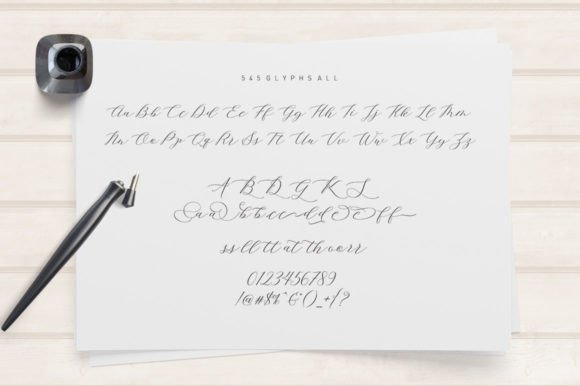 545 GLYPHS ALL
Aa Bb Cc Dd Ee Ff Gg Hh Ii Jj Kk Ll Mm
Nn Oo Pp Qq Rr Ss Tt Uu Vv Ww Xx Yy Zz
A B D G K L
ss ll tt at th oo rr
0123456789